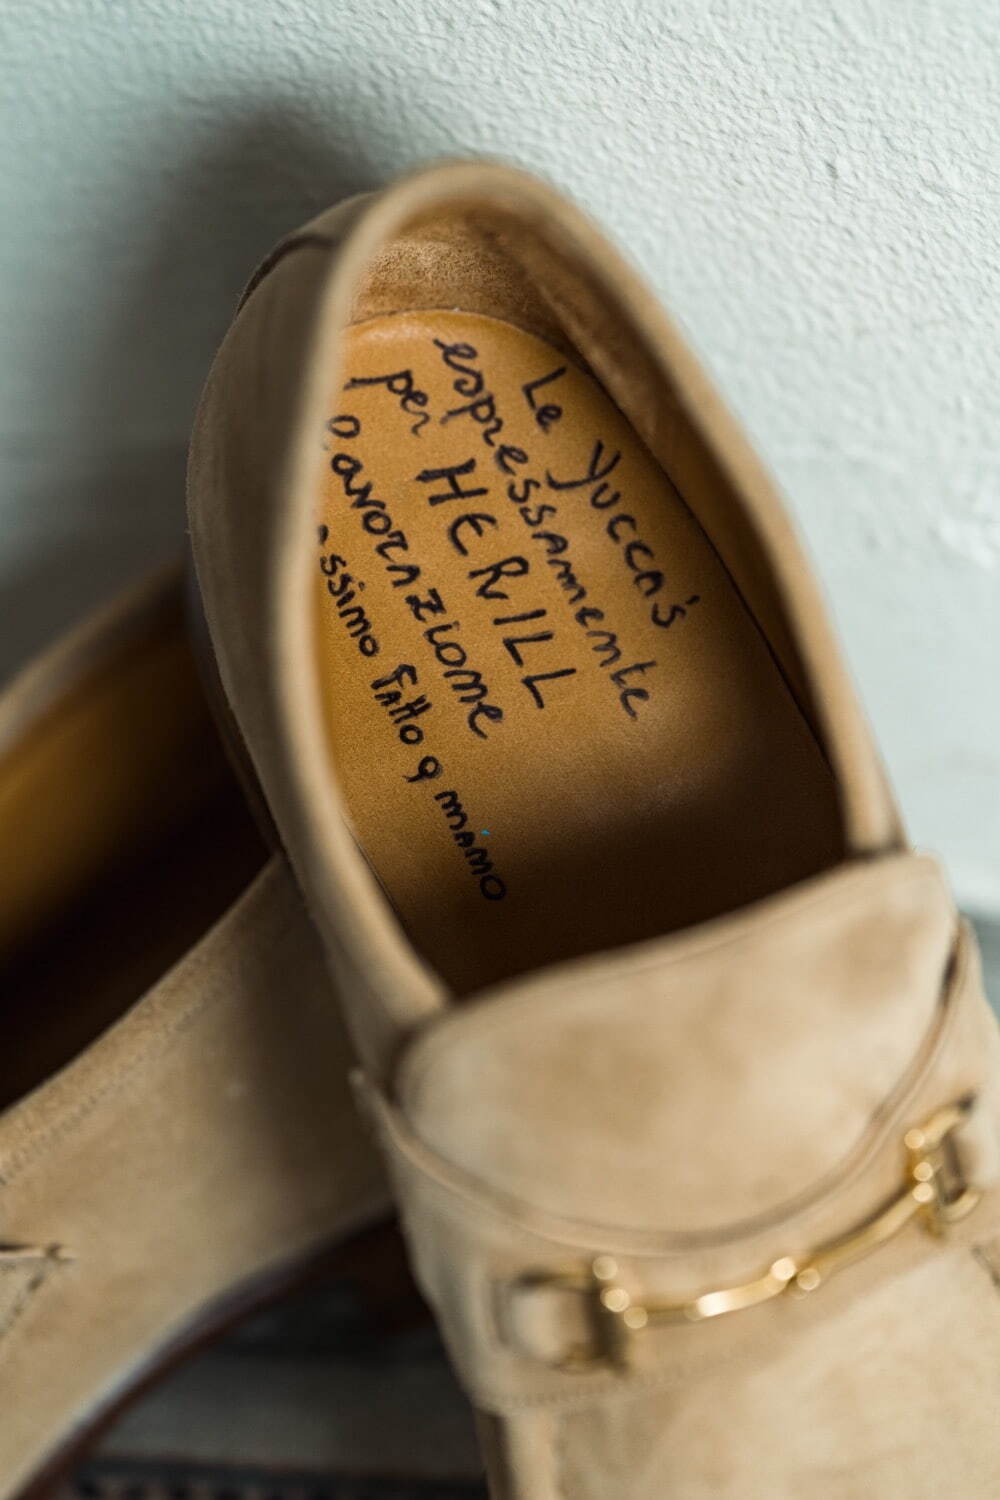 Le Yucca's
espressamente
per HERILL
Lavorazione
Fatto a mano